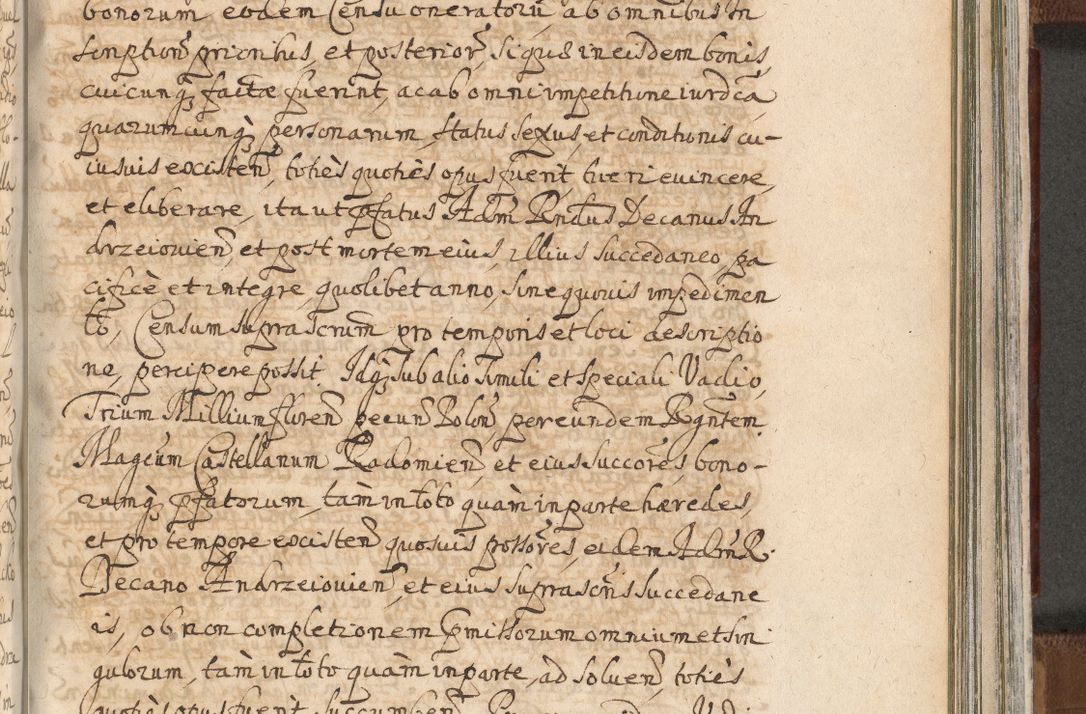 bonorum eodem Censu oneratorũ ab omnibus In
scription̄ prioribus, et posterior̄, si quæ in eisdem bonis
cuicunq̨ factæ fuerint, ac ab omni impetitione iurdcã
quarumcunq̨ personarum, status sexus, et conditionis cu-
iusuis existen̄, totiès quotiès opus fuerit, tueri euincere,
et eliberare, ita ut pfatus Adm̃ Rndus Decanus An
drzeiouien̄ et post mortem eius, illius succedaneo, pa
cificè et integre, quolibet anno, sine quouis impedimen
to, Censum suprascrum̃ pro temporis et loci descriptio
ne, percipere possit. Idq̨ sub alio simili et speciali Vadio,
Trium Millium floren̄ pecun̄ Polon̄, per eundem Rgñtem
Magcum̃ Castellanum Radomien̄, et eius succores̃, bono-
rumq̨ pfatorum, tàm in toto quàm in parte hæredes,
et pro tempore existen̄ quosuis possores̃, eidem Adm̃ R.
Decano Andrzeiouien̄, et eius suprascris̃ succedane
is, ob non completionem pmissorum omnium et sin
gulorum, tàm in toto quàm in parte, ad soluen̄, totiès
quotiès opus fuerit, succumben̄